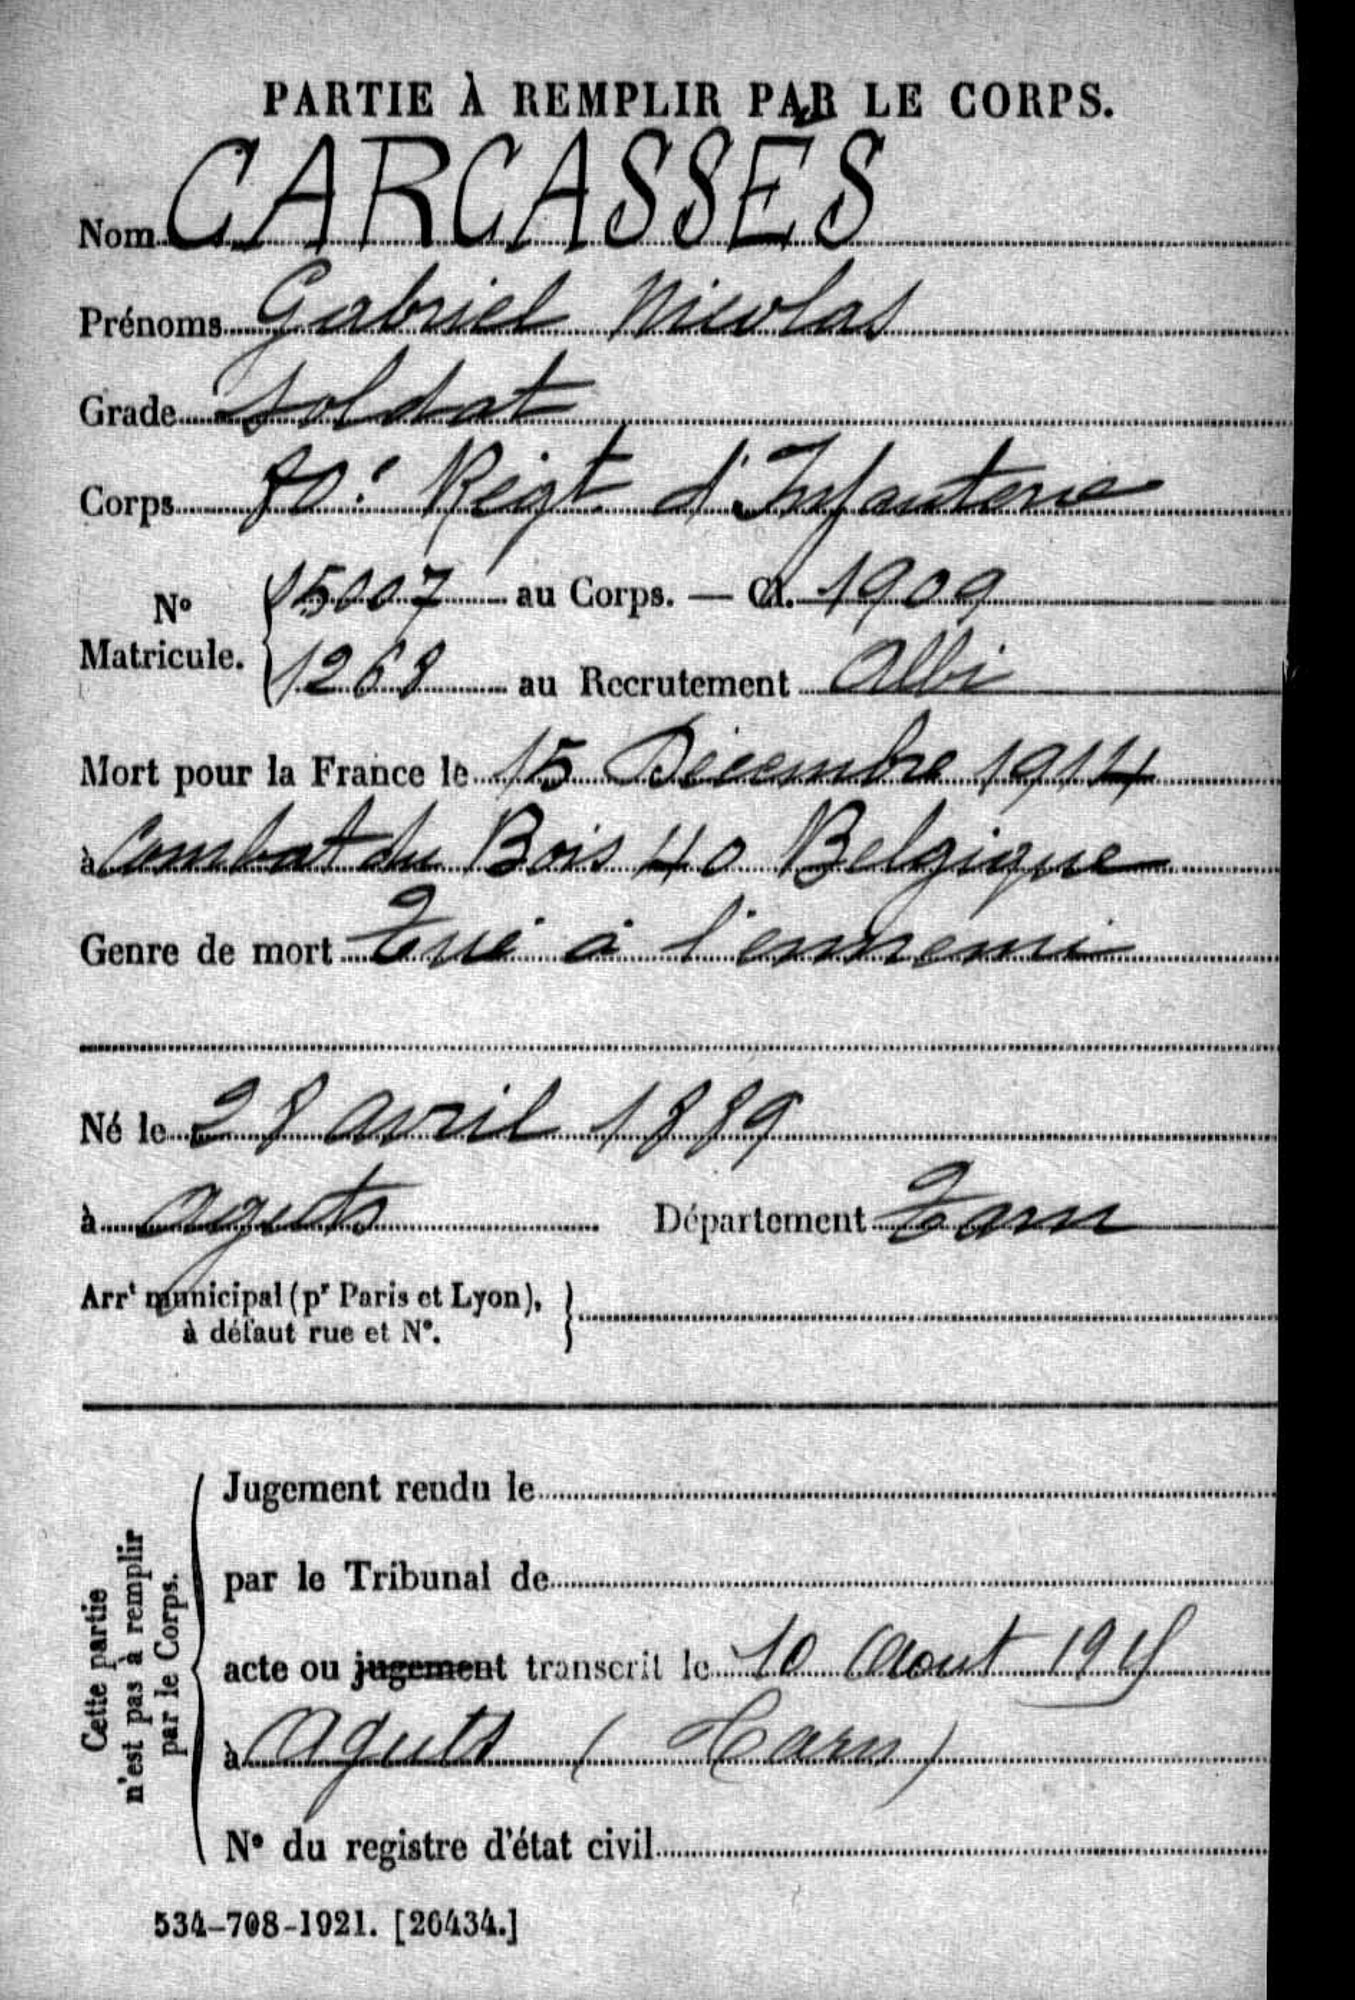 PARTIE À REMPLIR PAR LE CORPS.
Nom CARCASSÉS
Prénoms Gabriel Nicolas
Grade Soldat
Corps 80e Régt d'Infanterie
No Matricule. 15007 au Corps. — Cl. 1909
1268 au Recrutement Albi
Mort pour la France le 15 Décembre 1914
à Combat du Bois 40 Belgique
Genre de mort Tué à l'ennemi
Né le 28 avril 1889
à Aguts Département Tarn
Arrt municipal (pr Paris et Lyon),
à défaut rue et N°.
Cette partie
n'est pas à remplir
par le Corps.
Jugement rendu le
par le Tribunal de
acte ou jugement transcrit le 10 Aout
à Aguts (Tarn)
N° du registre d'état civil
534-708-1921. [26434.]